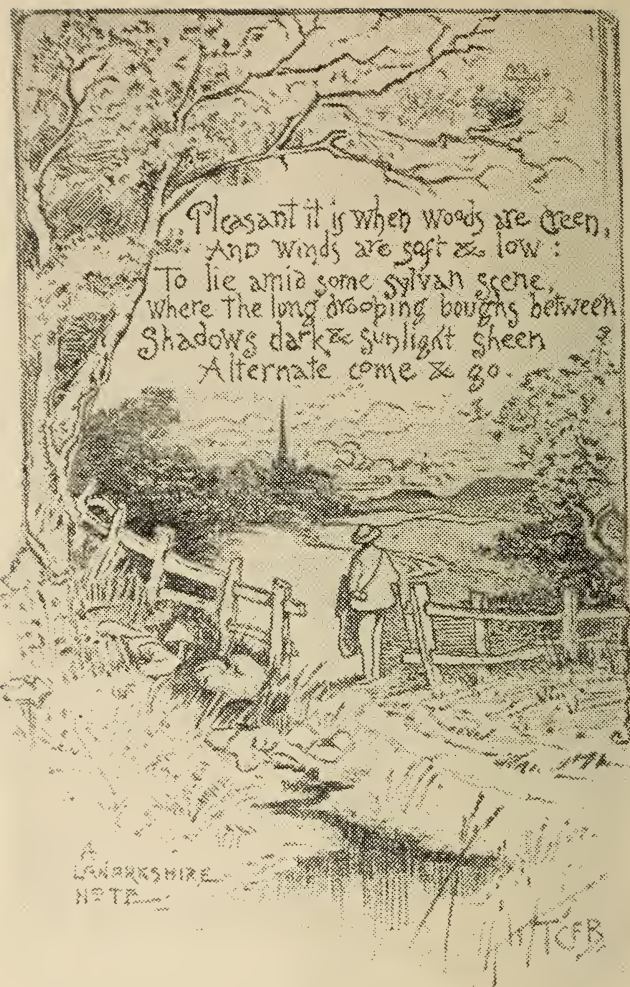 Pleasant it is when woods are Green,
And winds are soft & low :
To lie amid some sylvan scene,
Where the long drooping boughs between
Shadows dark & sunlight sheen
Alternate come & go.
A
LANARKSHIRE
NOTE